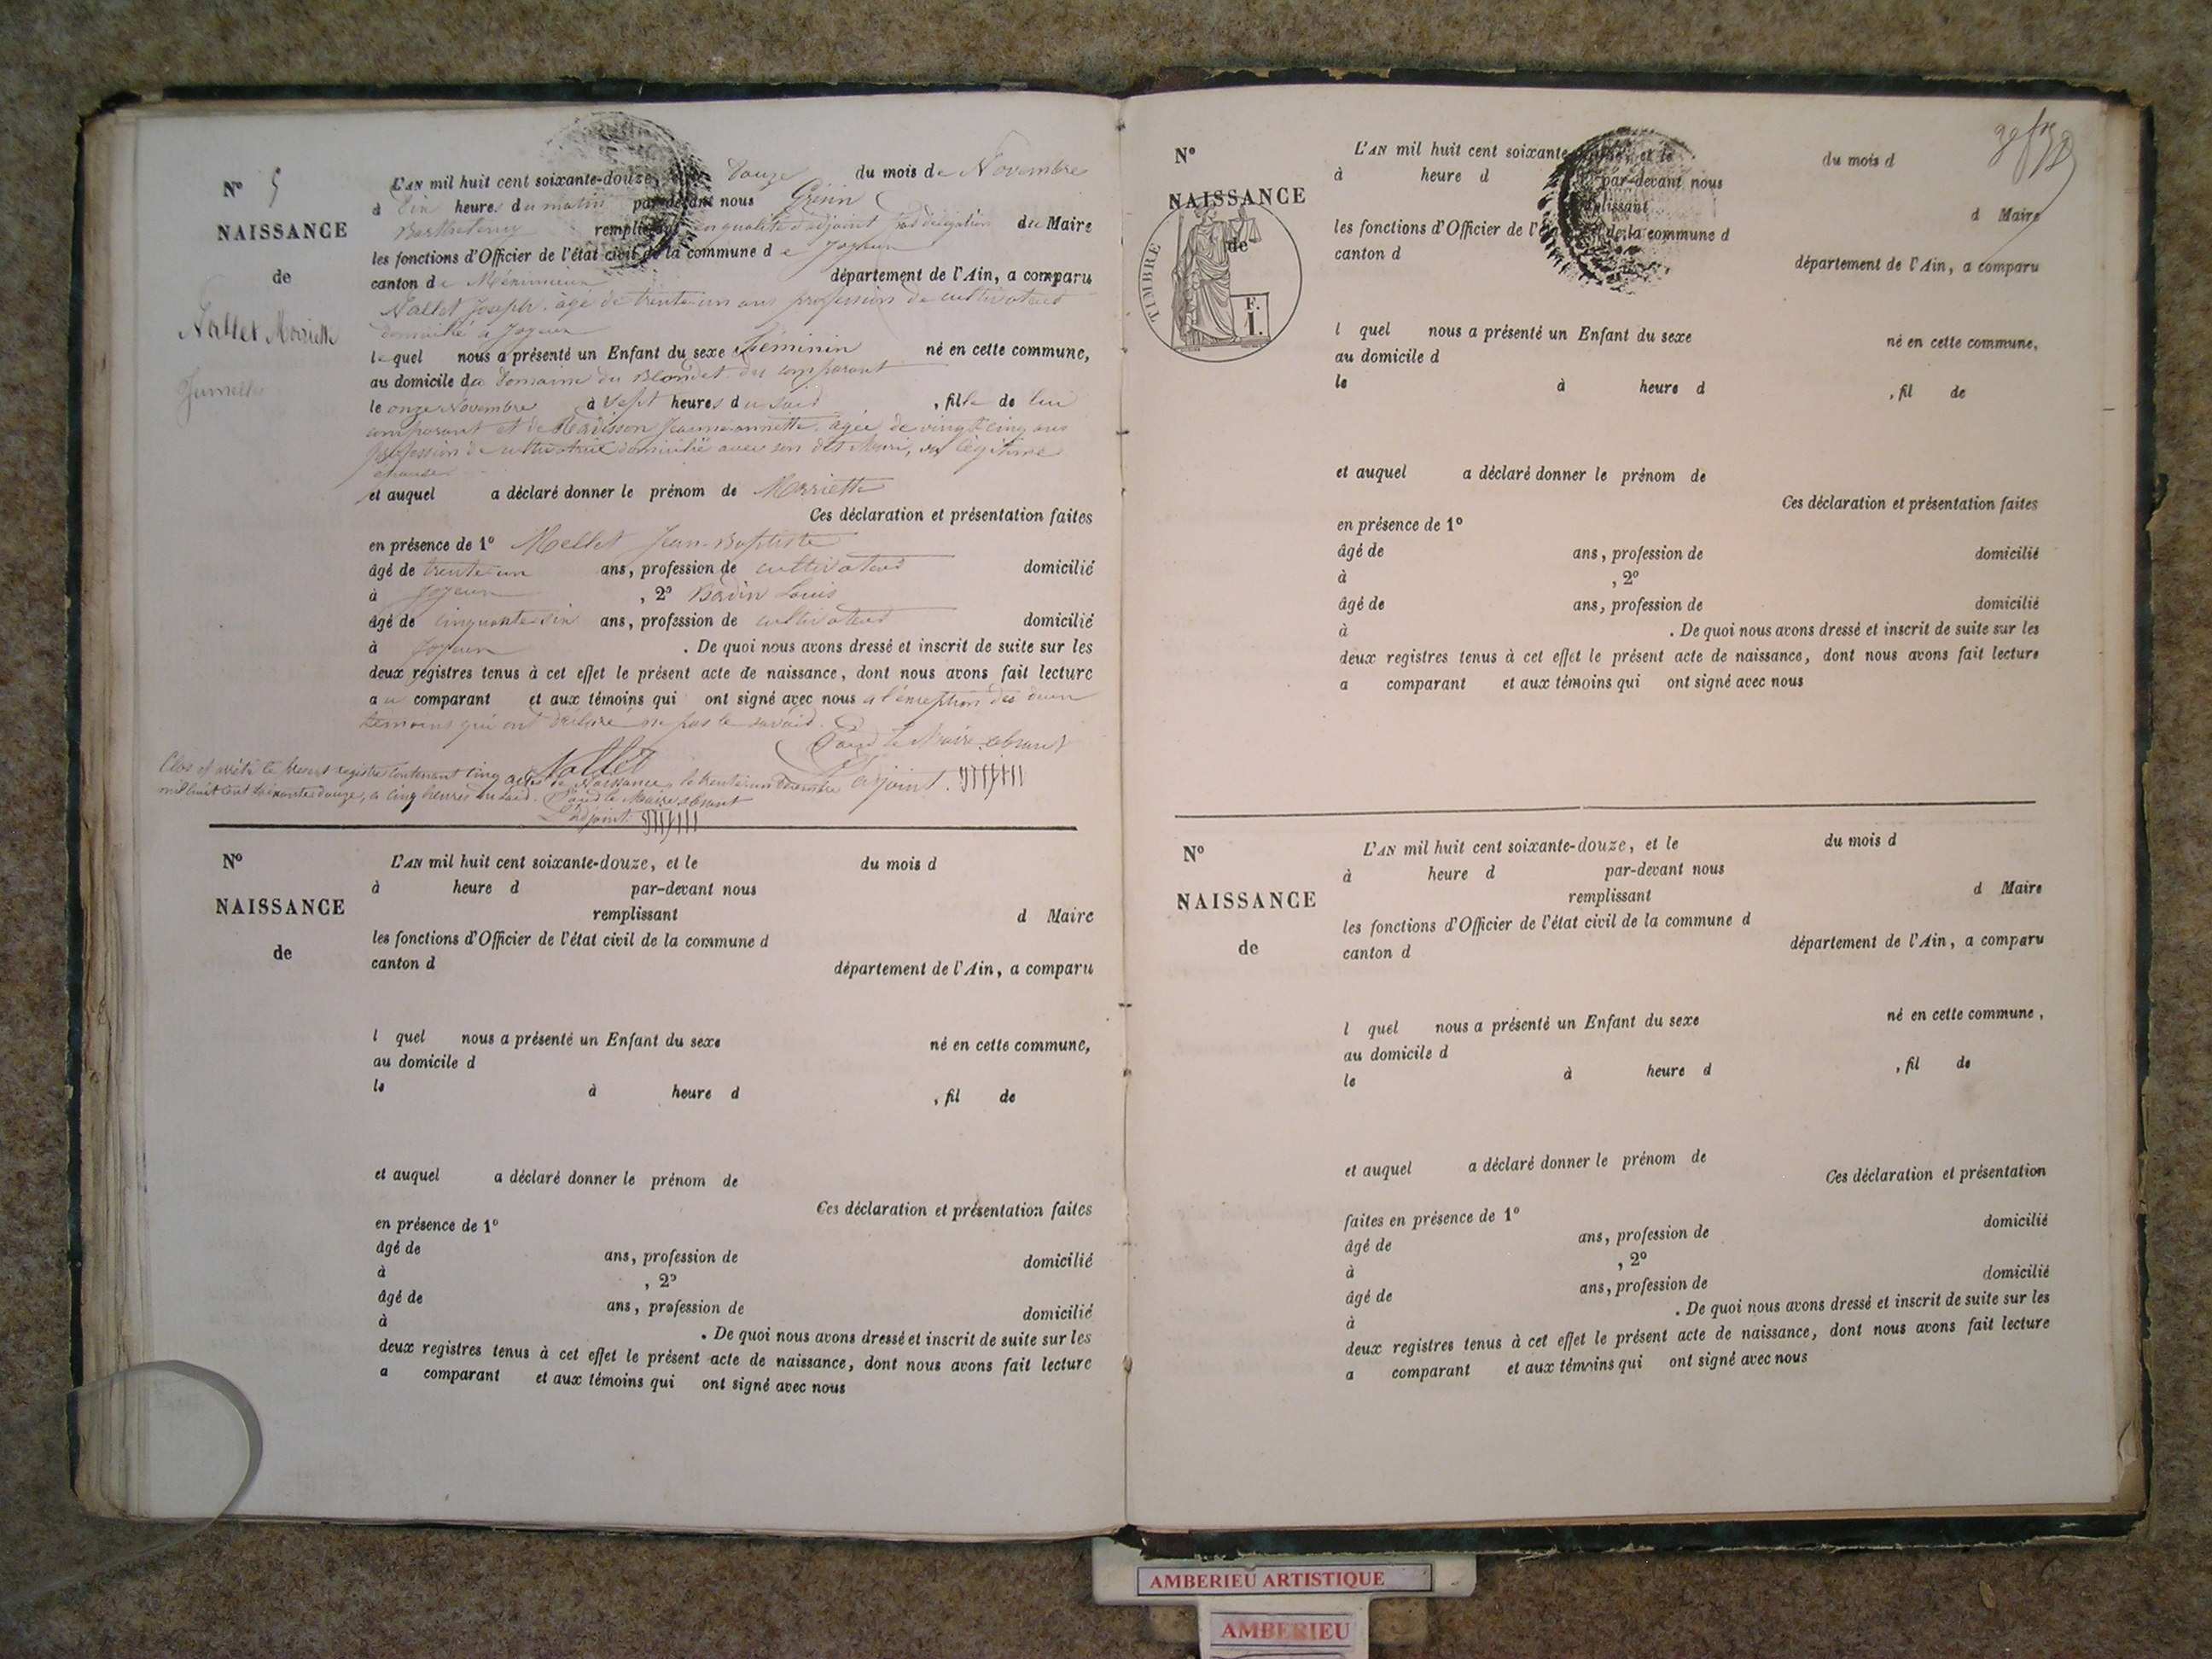 N° 5
NAISSANCE
de
Nallet Marriette
Jumelle
L'AN mil huit cent soixante-douze, douze du mois de Novembre
à Dix heures du matin par-devant nous Génin
Barthelemy en qualité d'adjoint par délégation du Maire
les fonctions d'Officier de l'état civil de la commune de Joyeux
canton de Méximieux département de l'Ain, a comparu
Nallet Joseph. âgé de trente-un ans profession de cultivateur
domicilié à Joyeux
lequel nous a présenté un Enfant du sexe Féminin né en cette commune,
au domicile du Domaine du Blondet du comparant
le onze Novembre à Sept heures du soir , fille de lui
comparant et de Jeanne-annette. âgée de vingt cinq ans
profession de cultivatrice domicilié avec son dit Mari, sa légitime
épouse
et auquel a déclaré donner le prénom de Marriette
Ces déclaration et présentation faites
en présence de 1° Mellet Jean-Baptiste
âgé de trente un ans, profession de cultivateur domicilié
à Joyeux , 2° Badin Louis
âgé de cinquante six ans, profession de cultivateur domicilié
à Joyeux . De quoi nous avons dressé et inscrit de suite sur les
deux registres tenus à cet effet le présent acte de naissance, dont nous avons fait lecture
au comparant et aux témoins qui ont signé avec nous a l'exception des deux
témoins qui ont déclaré ne pas le savoir.
Pour le Maire absent
Nallet
adjoint.
Clos et arrêté le present registre contenant cinq actes de Naissance, le trente un Décembre
mil huit cent soixante douze, a cinq heures du soir. Pour le Maire absent
L'adjoint.
N°
NAISSANCE
de
L'AN mil huit cent soixante-douze, et le du mois d
à heure d par-devant nous
remplissant d Maire
les fonctions d'Officier de l'état civil de la commune d
canton d département de l'Ain, a comparu
l quel nous a présenté un Enfant du sexe né en cette commune,
au domicile d
le à heure d , fil de
et auquel a déclaré donner le prénom de
Ces déclaration et présentation faites
en présence de 1°
âgé de ans, profession de domicilié
à , 2°
âgé de ans, profession de domicilié
à . De quoi nous avons dressé et inscrit de suite sur les
deux registres tenus à cet effet le présent acte de naissance, dont nous avons fait lecture
a comparant et aux témoins qui ont signé avec nous
N°
NAISSANCE
de
TIMBRE
F.
1.
L'AN mil huit cent soixante et le du mois d
à heure d par-devant nous
remplissant d Maire
les fonctions d'Officier de l'état de la commune d
canton d département de l'Ain, a comparu
l quel nous a présenté un Enfant du sexe né en cette commune,
au domicile d
le à heure d , fil de
et auquel a déclaré donner le prénom de
Ces déclaration et présentation faites
en présence de 1°
âgé de ans, profession de domicilié
à , 2°
âgé de ans, profession de domicilié
à . De quoi nous avons dressé et inscrit de suite sur les
deux registres tenus à cet effet le présent acte de naissance, dont nous avons fait lecture
a comparant et aux témoins qui ont signé avec nous
N°
NAISSANCE
de
L'AN mil huit cent soixante-douze, et le du mois d
à heure d par-devant nous
remplissant d Maire
les fonctions d'Officier de l'état civil de la commune d
canton d département de l'Ain, a comparu
l quel nous a présenté un Enfant du sexe né en cette commune,
au domicile d
le à heure d , fil de
et auquel a déclaré donner le prénom de
Ces déclaration et présentation
faites en présence de 1° domicilié
âgé de ans, profession de
à , 2° domicilié
âgé de ans, profession de
à . De quoi nous avons dressé et inscrit de suite sur les
deux registres tenus à cet effet le présent acte de naissance, dont nous avons fait lecture
a comparant et aux témoins qui ont signé avec nous
AMBERIEU ARTISTIQUE
AMBERIEU